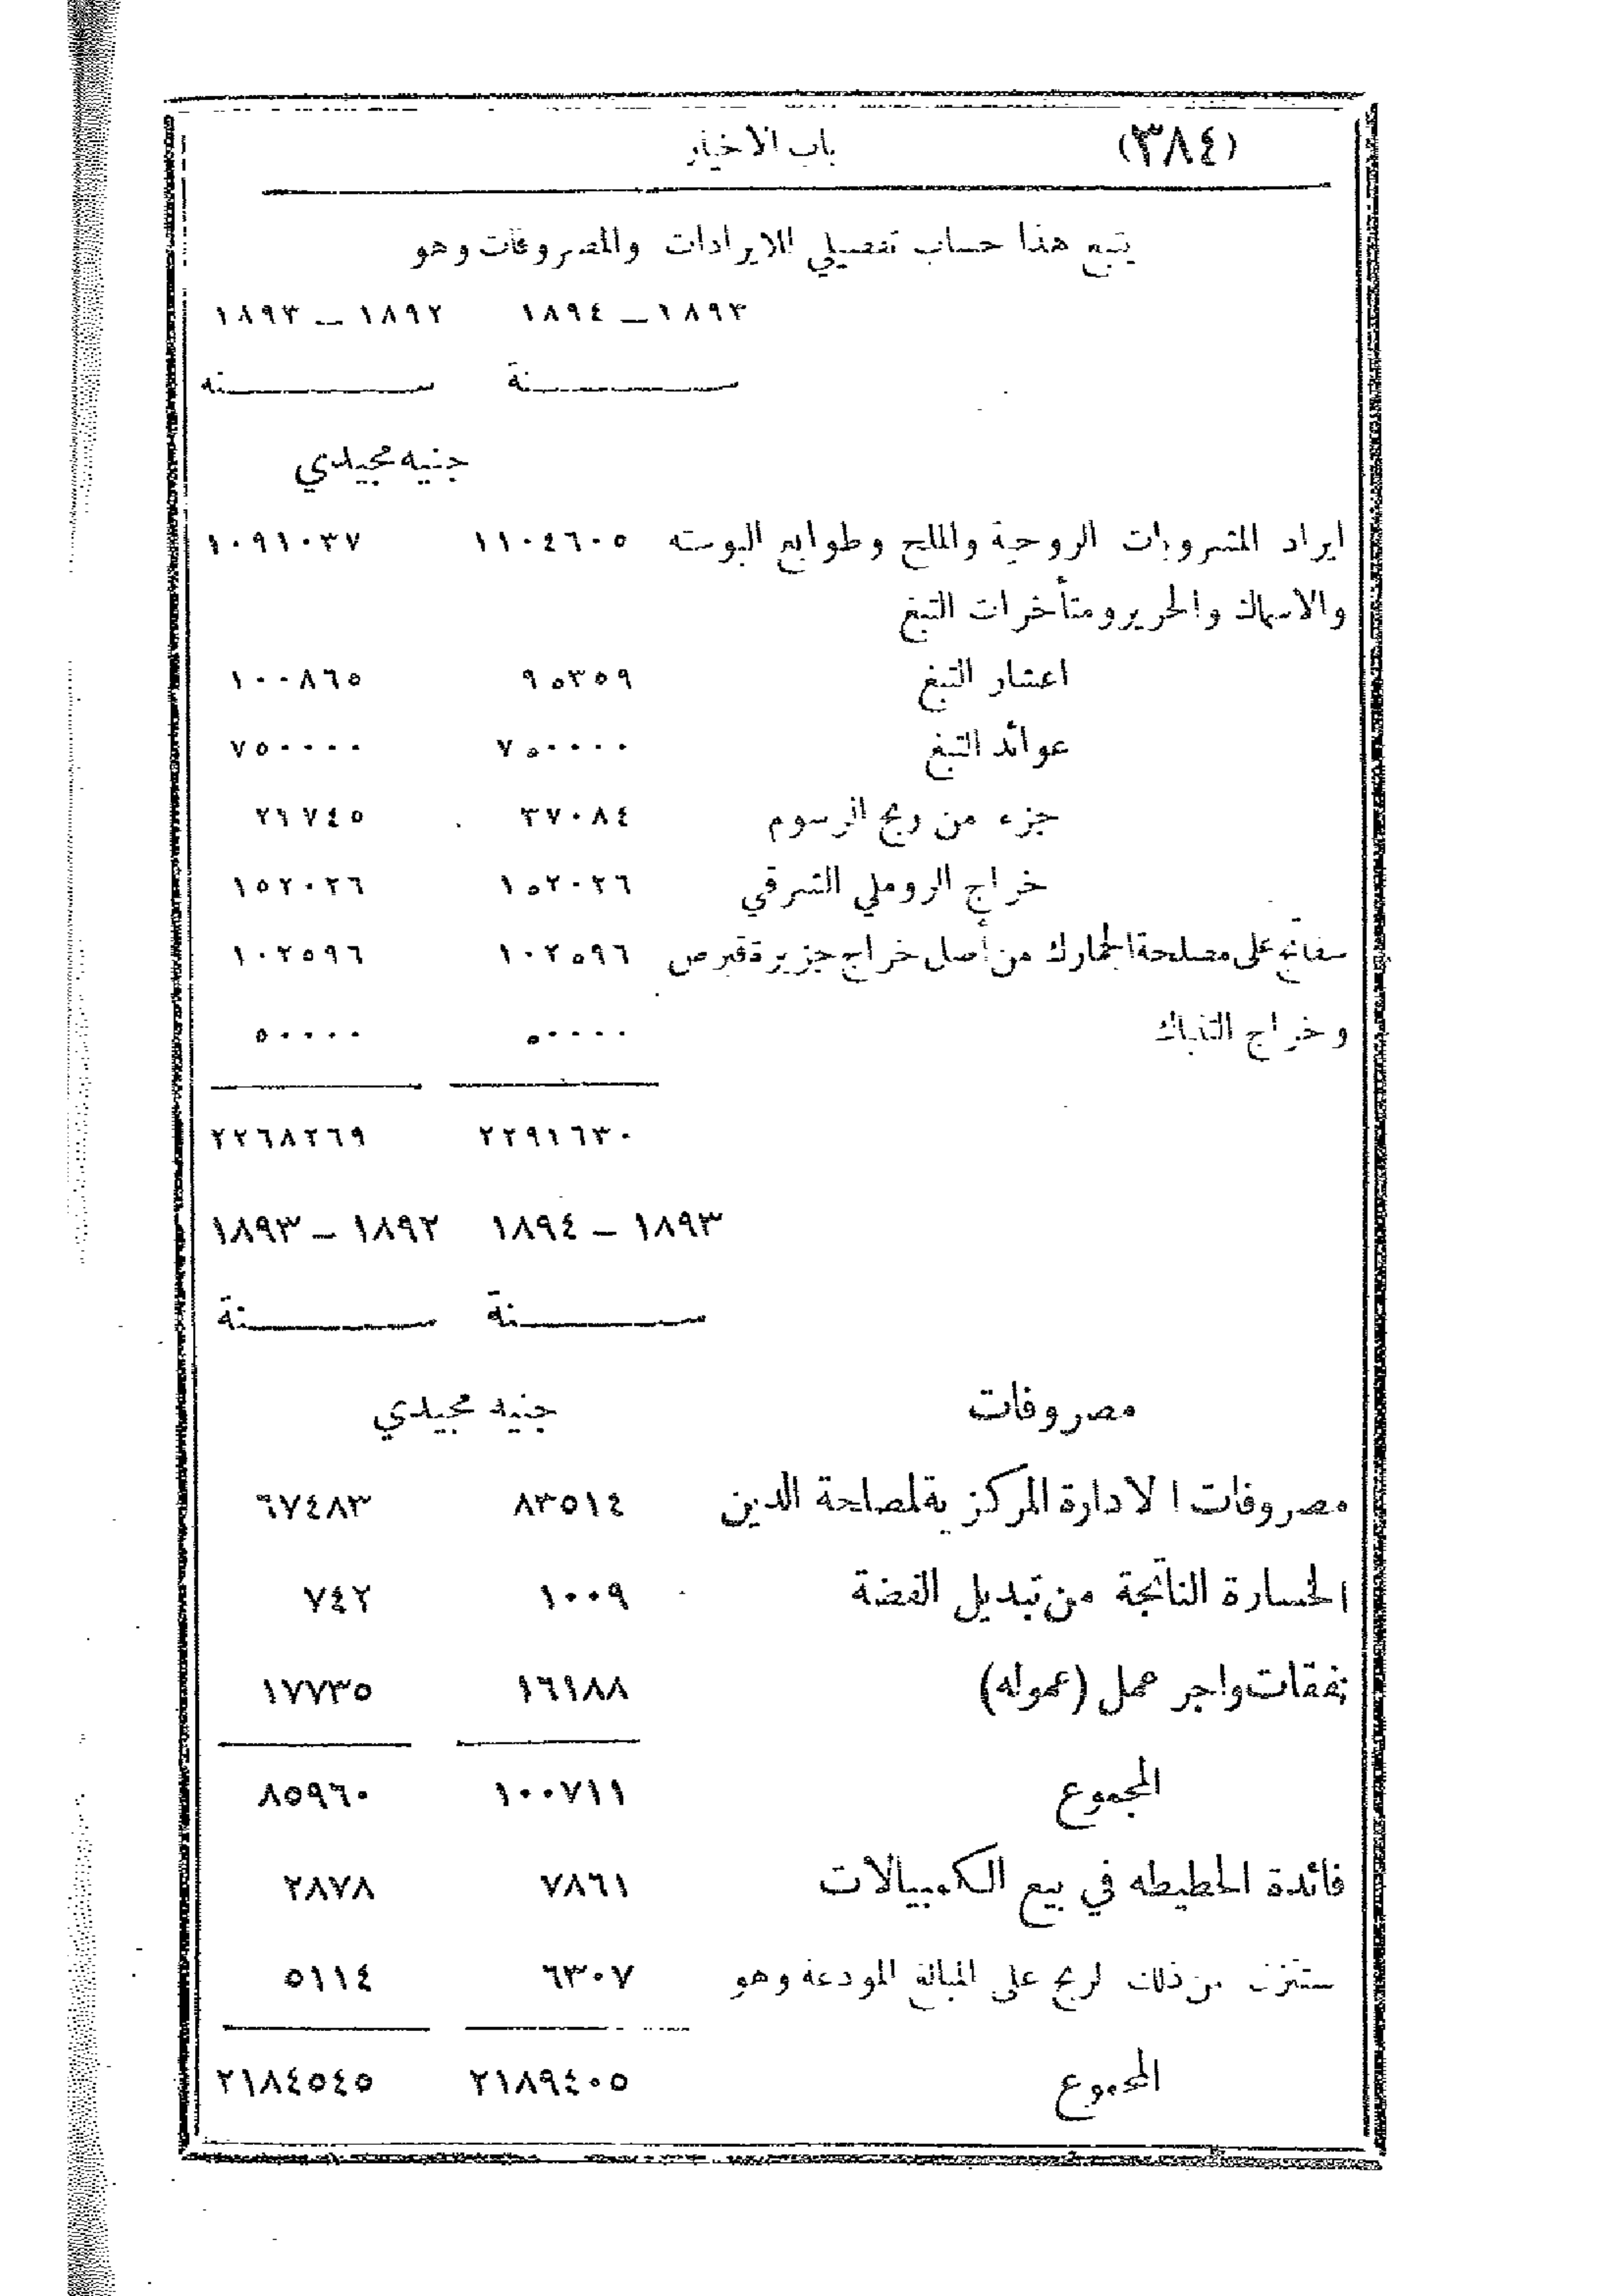 (٣٨٤) باب الاخبار
يتبع هذا حساب تفصيلي للايرادات والمصروفات وهو
١٨٩٣ – ١٨٩٤ ١٨٩٢ – ١٨٩٣
سنة سنه
جنيه مجيدي
ايراد المشروبات الروحية والملح وطوابع البوسته ١١٠٤٦٠٥ ١٠٩١٠٣٧
والاسماك والحرير ومتأخرات التبغ
اعشار التبغ ٩٥٣٥٩ ١٠٠٨٦٥
عوائد التبغ ٧٥٠٠٠٠ ٧٥٠٠٠٠
جزء من ربح الرسوم ٣٧٠٨٤ ٢١٧٤٥
خراج الروملي الشرقي ١٥٢٠٢٦ ١٥٢٠٢٦
سفاتج على مصلحة الجمارك من أصل خراج جزيرة قبرص ١٠٢٥٩٦ ١٠٢٥٩٦
وخراج التنباك ٥٠٠٠٠ ٥٠٠٠٠
٢٢٩١٦٣٠ ٢٢٦٨٢٦٩
١٨٩٣ – ١٨٩٤ ١٨٩٢ – ١٨٩٣
سنة سنة
مصروفات جنيه مجيدي
مصروفات الادارة المركزية لمصاحة الدين ٨٣٥١٤ ٦٧٤٨٣
الخسارة الناتجة من تبديل الفضة ١٠٠٩ ٧٤٢
نفقات واجر عمل (عموله) ١٦١٨٨ ١٧٧٣٥
المجموع ١٠٠٧١١ ٨٥٩٦٠
فائدة الحطيطه في بيع الكمبيالات ٧٨٦١ ٢٨٧٨
من ذلك لربح على المبالغ المودعة وهو ٦٣٠٧ ٥١١٤
المجموع ٢١٨٩٤٠٥ ٢١٨٤٥٤٥